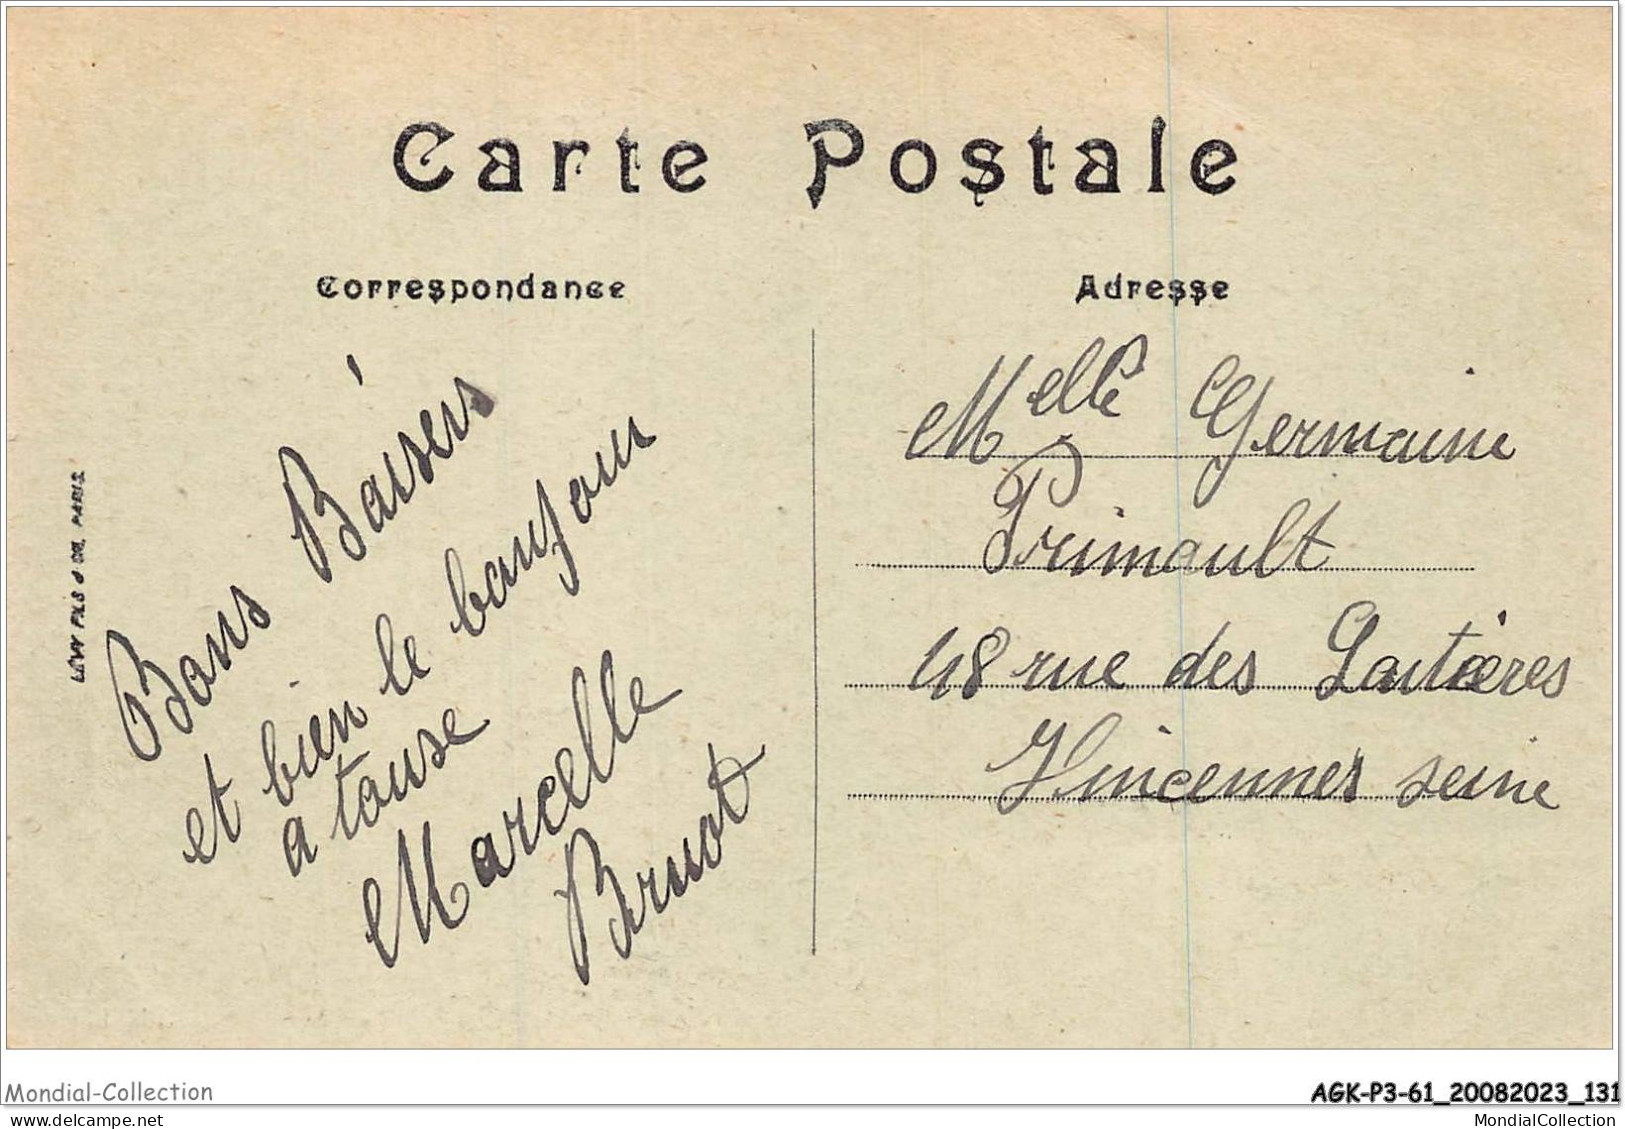 Carte Postale
Correspondance
Adresse
LÉVY FILS & Cie, PARIS
Bons Baisers
et bien le bonjour
a touse
Marcelle
Bruot
Melle Germaine
Primault
48 rue des Laitières
Vincennes seine
Mondial-Collection
AGK-P3-61_20082023_131
MondialCollection